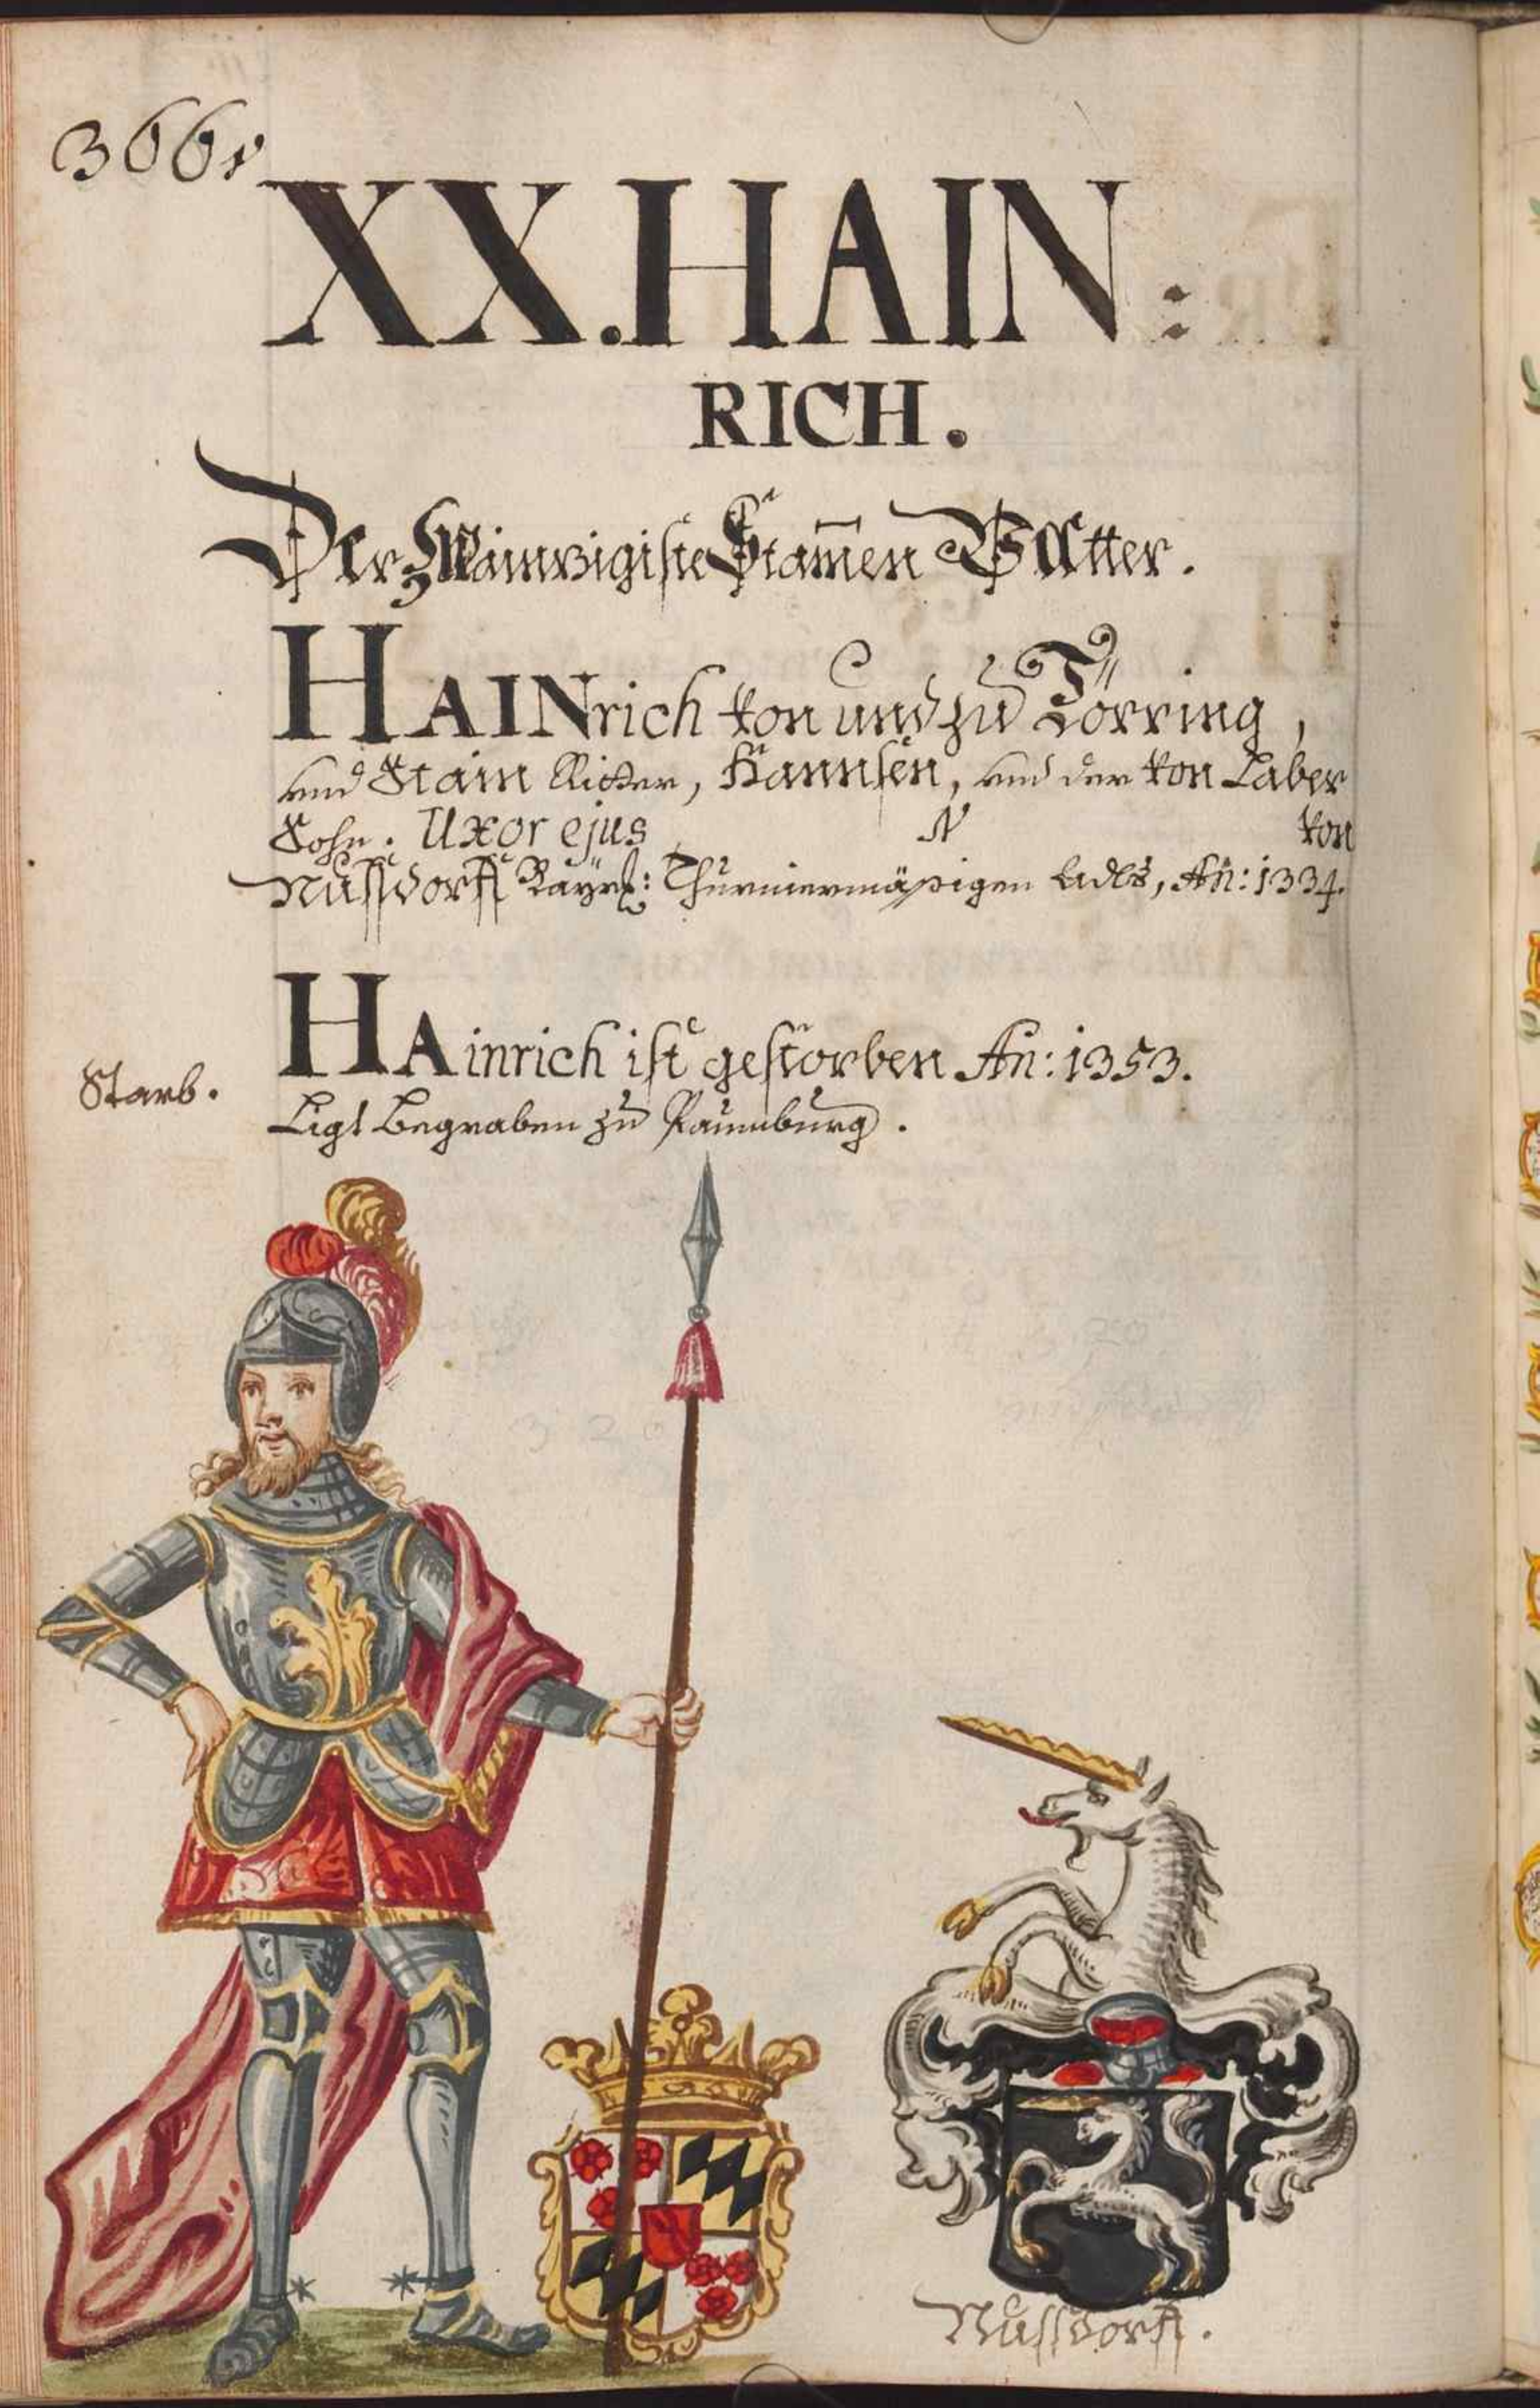 366v
XX. HAIN:
RICH.
Der Zwainzigiste Stam̄en Vatter.
HAINrich von und zu Törring,
und Stain Ritter, Hannsen, und der von Laber
Sohn. Uxor ejus N von
Nussdorff Bayrl: Thurniermäßigen Adls, An: 1334.
HAinrich ist gestorben An: 1353.
Starb.
Ligt Begraben zu Raitenburg.
Nussdorff.